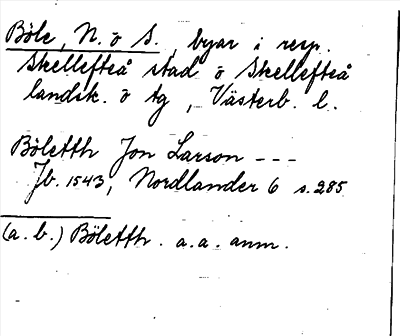 Böle, N. o S., byar i resp.
Skellefteå stad o Skellefteå
landsk. o tg, Västerb. l.
Böletth Jon Larson - - -
Jb. 1543, Nordlander 6 s. 285
(a. b.) Böletth. a. a. anm.